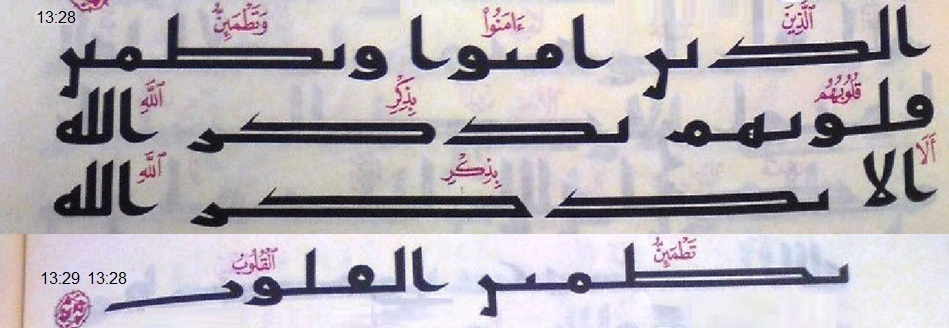 13:28
ٱلَّذِينَ ءَامَنُوا۟ وَتَطْمَئِنُّ
الدىں امىوا وىطمىں
قُلُوبُهُم بِذِكْرِ ٱللَّهِ
ڡلوىهم ىدكر الله
أَلَا بِذِكْرِ ٱللَّهِ
الا ىدكر الله
تَطْمَئِنُّ ٱلْقُلُوبُ
ىطمىں الڡلوٮ
13:29 13:28